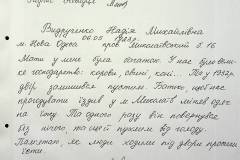 Видрученко Надія Михайлівна
06.05 1923г.
м. Нова Одеса пров. Миколаївський б 16
Мати у мене була багатою. У нас було велике господарство: корови, свині, коні... То у 1932р
двір залишився пустим. Батько, щоб нас
прогодувати їздив у м Миколаїв міняв одяг
на їжу. Та одного разу він повернувся
без нічого, та ще й пухлим від голоду.
Пам'ятаю, як люди ходили під двори просили
їсти.